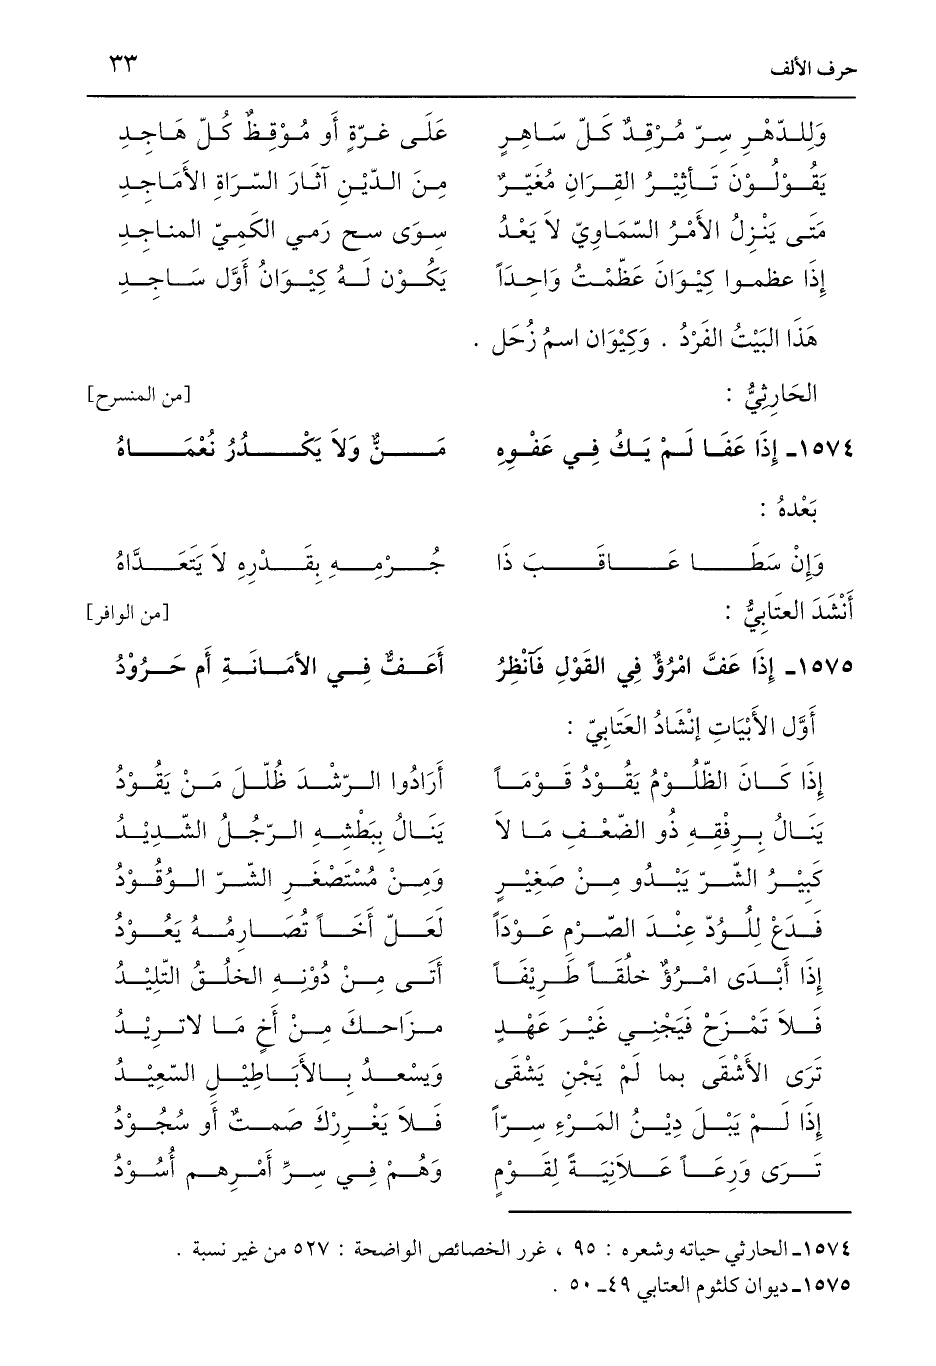 حرف الألف ٣٣
وَلِلـدّهْـرِ سِـرّ مُـرْقِـدٌ كَـلّ سَـاهِـرٍ عَلَـى غـرّةٍ أو مُـوْقِـظٌ كُـلّ هَـاجِـدِ
يَقُـوْلُـوْنَ تَـأثِيْـرُ القِـرَانِ مُغَيّـرٌ مِـنَ الـدِّيْـنِ آثَـارَ السّـرَاةِ الأمَـاجِـدِ
مَتَـى يَنْـزِلُ الأمْـرُ السّمَـاوِيّ لاَ يَعْـدُ سِـوَى سـح رَمـي الكَمِـيّ المنـاجِـدِ
إِذَا عظمـوا كِيْـوَانَ عَظَّمْـتُ وَاحِـدَاً يَكُـوْن لَـهُ كِيْـوَانُ أوَّل سَـاجِـدِ
هَذَا البَيْتُ الفَرْدُ . وَكِيْوَان اسمُ زُحَل .
الحَارِثِيُّ : [من المنسرح]
١٥٧٤ـ إِذَا عَفَـا لَـمْ يَـكُ فِـي عَفْـوِهِ مَـنٌّ وَلاَ يَكْـدُرُ نُعْمَـاهُ
بَعْدهُ :
وَإِنْ سَطَـا عَـاقَـبَ ذَا جُـرْمِـهِ بِقَـدْرِهِ لاَ يَتَعَـدَّاهُ
أَنْشَدَ العتَابِيُّ : [من الوافر]
١٥٧٥ـ إِذَا عَفَّ امْرُؤٌ فِي القَوْلِ فَآنْظِرُ أَعَـفٌّ فِـي الأمَـانَـةِ أم حَـرُوْدُ
أَوَّل الأَبْيَاتِ إِنْشَادُ العَتَابِيّ :
إِذَا كَـانَ الظّلُـوْمُ يَقُـوْدُ قَـوْمَـاً أَرَادُوا الـرّشْـدَ ظُلّـلَ مَـنْ يَقُـوْدُ
يَنَـالُ بِـرِفْقِـهِ ذُو الضّعْـفِ مَـا لاَ يَنَـالُ بِبَطْشِـهِ الـرّجُـلُ الشّـدِيْـدُ
كَبِيْـرُ الشّـرّ يَبْـدُو مِـنْ صَغِيْـرٍ وَمِـنْ مُسْتَصْغَـرِ الشّـرّ الـوُقُـوْدُ
فَـدَعْ لِلْـوُدّ عِنْـدَ الصّـرْمِ عَـوْدَاً لَعَـلّ أَخَـاً تُصَـارِمُـهُ يَعُـوْدُ
إِذَا أَبْـدَى امْـرُؤٌ خلُقَـاً طَـرِيْفَـاً أَتَـى مِـنْ دُوْنِـهِ الخلُـقُ التّلِيْـدُ
فَـلاَ تَمْـزَحْ فَيَجْنِـي غَيْـرَ عَهْـدٍ مـزَاحـكَ مِـنْ أَخٍ مَـا لاتـرِيْـدُ
تَرَى الأشْقَى بما لَمْ يَجْنِ يَشْقَى وَيسْعـدُ بِـالأبَـاطِيْـلِ السّعِيْـدُ
إِذَا لَـمْ يَبْـلَ دِيْـنُ المَـرْءِ سِـرّاً فَـلاَ يَغْـرِرْكَ صَمـتٌ أو سُجُـوْدُ
تَـرَى وَرِعَـاً عَـلاَنِيَـةً لِقَـوْمٍ وَهُـمْ فِـي سِـرِّ أَمْـرِهـم أُسُـوْدُ
١٥٧٤ـ الحارثي حياته وشعره : ٩٥ ، غرر الخصائص الواضحة : ٥٢٧ من غير نسبة .
١٥٧٥ـ ديوان كلثوم العتابي ٤٩ـ ٥٠ .